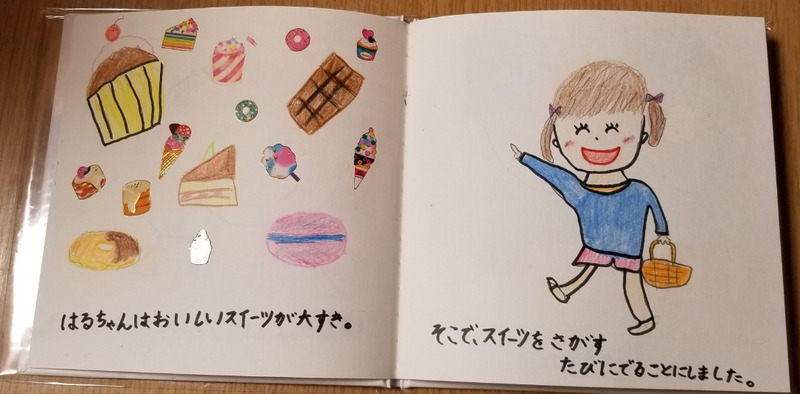 はるちゃんはおいしいスイーツが大すき。
そこで、スイーツをさがす
たびにでることにしました。